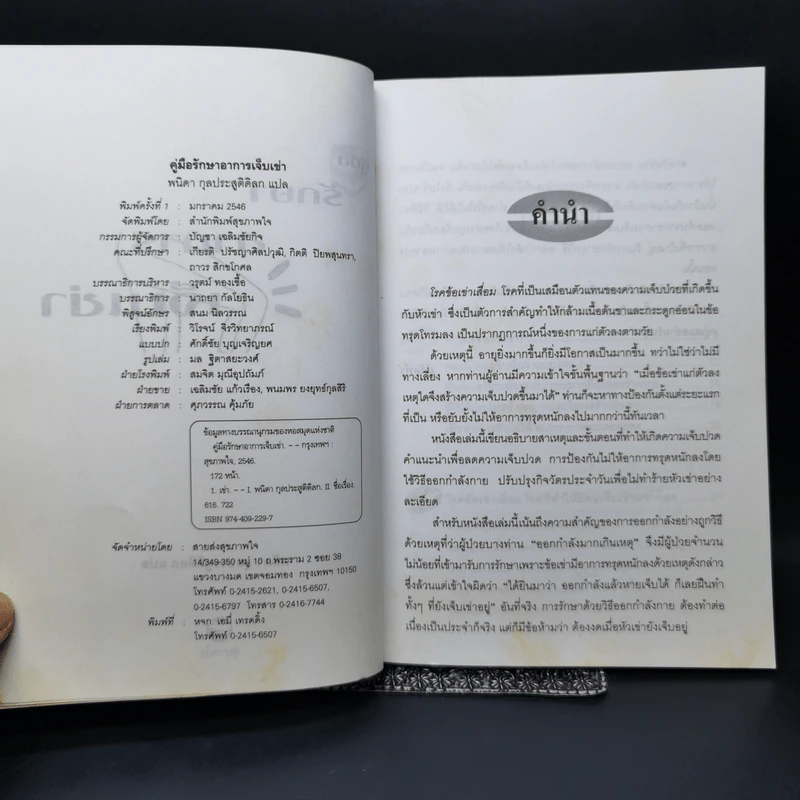 คู่มือรักษาอาการเจ็บเข่า
พนิดา กุลประสูติดิลก แปล
พิมพ์ครั้งที่ 1 : มกราคม 2546
จัดพิมพ์โดย : สำนักพิมพ์สุขภาพใจ
กรรมการผู้จัดการ : บัญชา เฉลิมชัยกิจ
คณะที่ปรึกษา : เกียรติ ปรัชญาศิลปวุฒิ, กิตติ ปิยพสุนทรา,
ถาวร สิกขโกศล
บรรณาธิการบริหาร : วรุตม์ ทองเชื้อ
บรรณาธิการ : นาถยา กัลโยธิน
พิสูจน์อักษร : สนม นิลวรรณ์
เรียงพิมพ์ : วิโรจน์ จิรวิทยาภรณ์
แบบปก : ศักดิ์ชัย บุญเจริญยศ
รูปเล่ม : มล ฐิตาสยะวงศ์
ฝ่ายโรงพิมพ์ : สมจิต มุณีอุปถัมภ์
ฝ่ายขาย : เฉลิมชัย แก้วเรือง, พนมพร ยงยุทธ์กุลสีริ
ฝ่ายการตลาด : ศุภวรรณ คุ้มภัย
ข้อมูลทางบรรณานุกรมของหอสมุดแห่งชาติ
คู่มือรักษาอาการเจ็บเข่า. -- กรุงเทพฯ :
สุขภาพใจ, 2546.
172 หน้า.
1. เข่า. -- I. พนิดา กุลประสูติดิลก. II. ชื่อเรื่อง.
616. 722
ISBN 974-409-229-7
จัดจำหน่ายโดย : สายส่งสุขภาพใจ
14/349-350 หมู่ 10 ถ.พระราม 2 ซอย 38
แขวงบางมด เขตจอมทอง กรุงเทพฯ 10150
โทรศัพท์ 0-2415-2621, 0-2415-6507,
0-2415-6797 โทรสาร 0-2416-7744
พิมพ์ที่ : หจก. เอมี่ เทรดดิ้ง
โทรศัพท์ 0-2415-6507
คำนำ
โรคข้อเข่าเสื่อม โรคที่เป็นเสมือนตัวแทนของความเจ็บป่วยที่เกิดขึ้น
กับหัวเข่า ซึ่งเป็นตัวการสำคัญทำให้กล้ามเนื้อต้นขาและกระดูกอ่อนในข้อ
ทรุดโทรมลง เป็นปรากฏการณ์หนึ่งของการแก่ตัวลงตามวัย
ด้วยเหตุนี้ อายุยิ่งมากขึ้นก็ยิ่งมีโอกาสเป็นมากขึ้น ทว่าไม่ใช่ว่าไม่มี
ทางเลี่ยง หากท่านผู้อ่านมีความเข้าใจขั้นพื้นฐานว่า “เมื่อข้อเข่าแก่ตัวลง
เหตุใดจึงสร้างความเจ็บปวดขึ้นมาได้” ท่านก็จะหาทางป้องกันตั้งแต่ระยะแรก
ที่เป็น หรือยับยั้งไม่ให้อาการทรุดหนักลงไปมากกว่านี้ทันเวลา
หนังสือเล่มนี้เขียนอธิบายสาเหตุและขั้นตอนที่ทำให้เกิดความเจ็บปวด
คำแนะนำเพื่อลดความเจ็บปวด การป้องกันไม่ให้อาการทรุดหนักลงโดย
ใช้วิธีออกกำลังกาย ปรับปรุงกิจวัตรประจำวันเพื่อไม่ทำร้ายหัวเข่าอย่าง
ละเอียด
สำหรับหนังสือเล่มนี้เน้นถึงความสำคัญของการออกกำลังอย่างถูกวิธี
ด้วยเหตุที่ว่าผู้ป่วยบางท่าน “ออกกำลังมากเกินเหตุ” จึงมีผู้ป่วยจำนวน
ไม่น้อยที่เข้ามารับการรักษาเพราะข้อเข่ามีอาการทรุดหนักลงด้วยเหตุดังกล่าว
ซึ่งล้วนแต่เข้าใจผิดว่า “ได้ยินมาว่า ออกกำลังแล้วหายเจ็บได้ ก็เลยฝืนทำ
ทั้งๆ ที่ยังเจ็บเข่าอยู่” อันที่จริง การรักษาด้วยวิธีออกกำลังกาย ต้องทำต่อ
เนื่องเป็นประจำก็จริง แต่ก็มีข้อห้ามว่า ต้องงดเมื่อหัวเข่ายังเจ็บอยู่